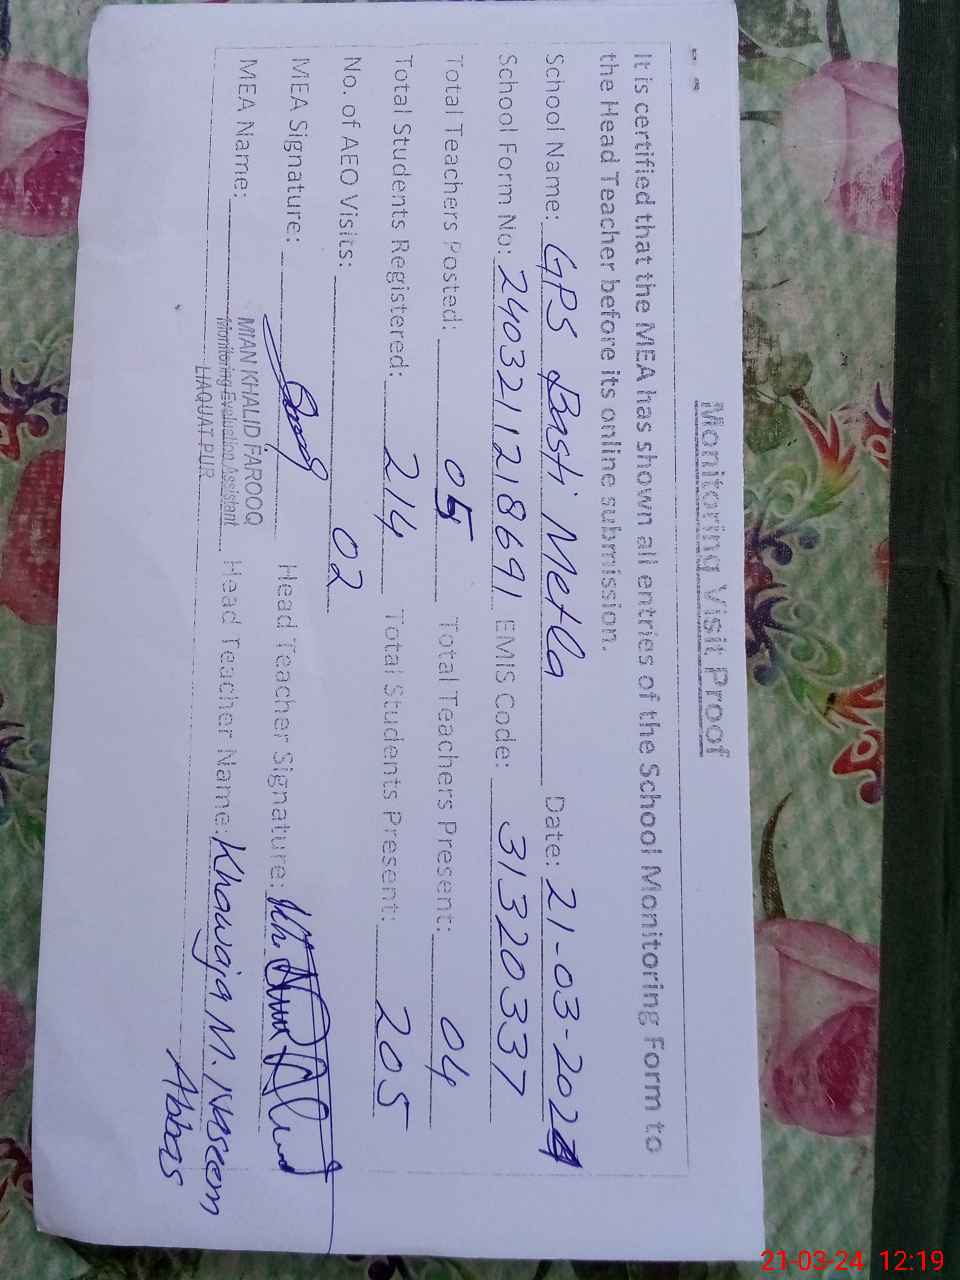 Monitoring Visit Proof
It is certified that the MEA has shown all entries of the School Monitoring Form to
the Head Teacher before its online submission.
School Name: GPS Basti Metla Date: 21-03-2024
School Form No: 240321121218691 EMIS Code: 31320337
Total Teachers Posted: 05 Total Teachers Present: 04
Total Students Registered: 214 Total Students Present: 205
No. of AEO Visits: 02
MEA Signature: Head Teacher Signature:
MEA Name: MIAN KHALID FAROOQ
Monitoring Evaluation Assistant
LIAQUAT PUR
Head Teacher Name: Khawaja M. Naseem
Abbas
21-03-24 12:19